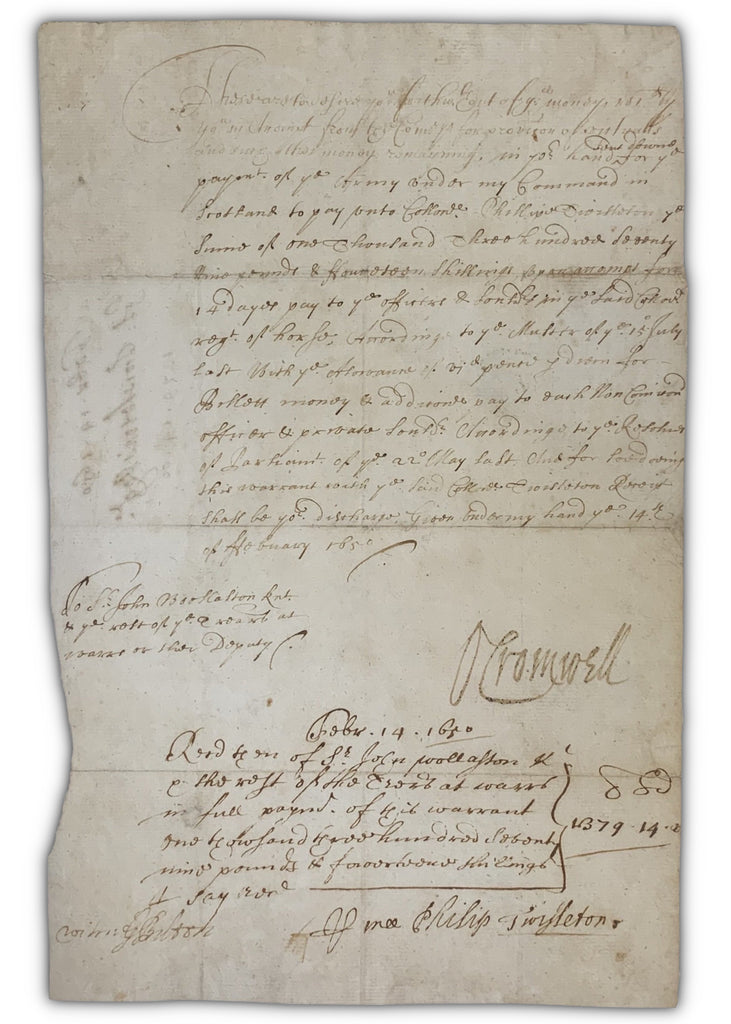 These are to desire you forthwth out of ye money
and any other money remaining in yor hands sent downe for ye
paymt. of ye Army under my Command in
Scotland to pay unto Collone. Phillip Twisleton ye
Sume of one Thousand Three hundred Seventy
Nine pounds & ffourteen Shillings upon accompt for
14 dayes pay to ye officers & Souldrs in ye said Collo
regt. of horse, According to ye Muster of ye 15 July
last With ye Allowance of vj pence p diem for
Billett money & additional pay to each Non Commiond
officer & private Souldr. According to ye. Resolues
of Parliamt. of ye 22th May last. And for soe doeing
this warrant with ye said Collone Twisleton Receipt
Shall be yor. discharge, Given under my hand ye. 14th
of ffebruary 1650
To Sr. John Wollaston Knt.
& ye rest of ye Trearrs at
warrs or their Deputy
O Cromwell
Febr. 14. 1650
Recd then of Sr. John Wollaston K
& the rest of the Trers at warrs
in full paymt. of this warrant
one thowsand three hundred Seventy
nine pounds & fowerteene shillings
I say recd
1379-14-
p mee Philip Twisleton.